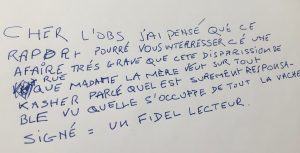 CHER L'OBS J'AI PENSÉ QUE CE
RAPORT POURRÉ VOUS INTERRESSER CÉ UNE
AFAIRE TRÉS GRAVE QUE CETE DISPARISSION DE
RUE QUE MADAME LA MÈRE VEUT SUR TOUT
KASHER PARCE QUEL EST SUREMENT RESPONSA-
BLE VU QUELLE S'OCCUPE DE TOUT LA VACHE
SIGNÉ = UN FIDEL LECTEUR.